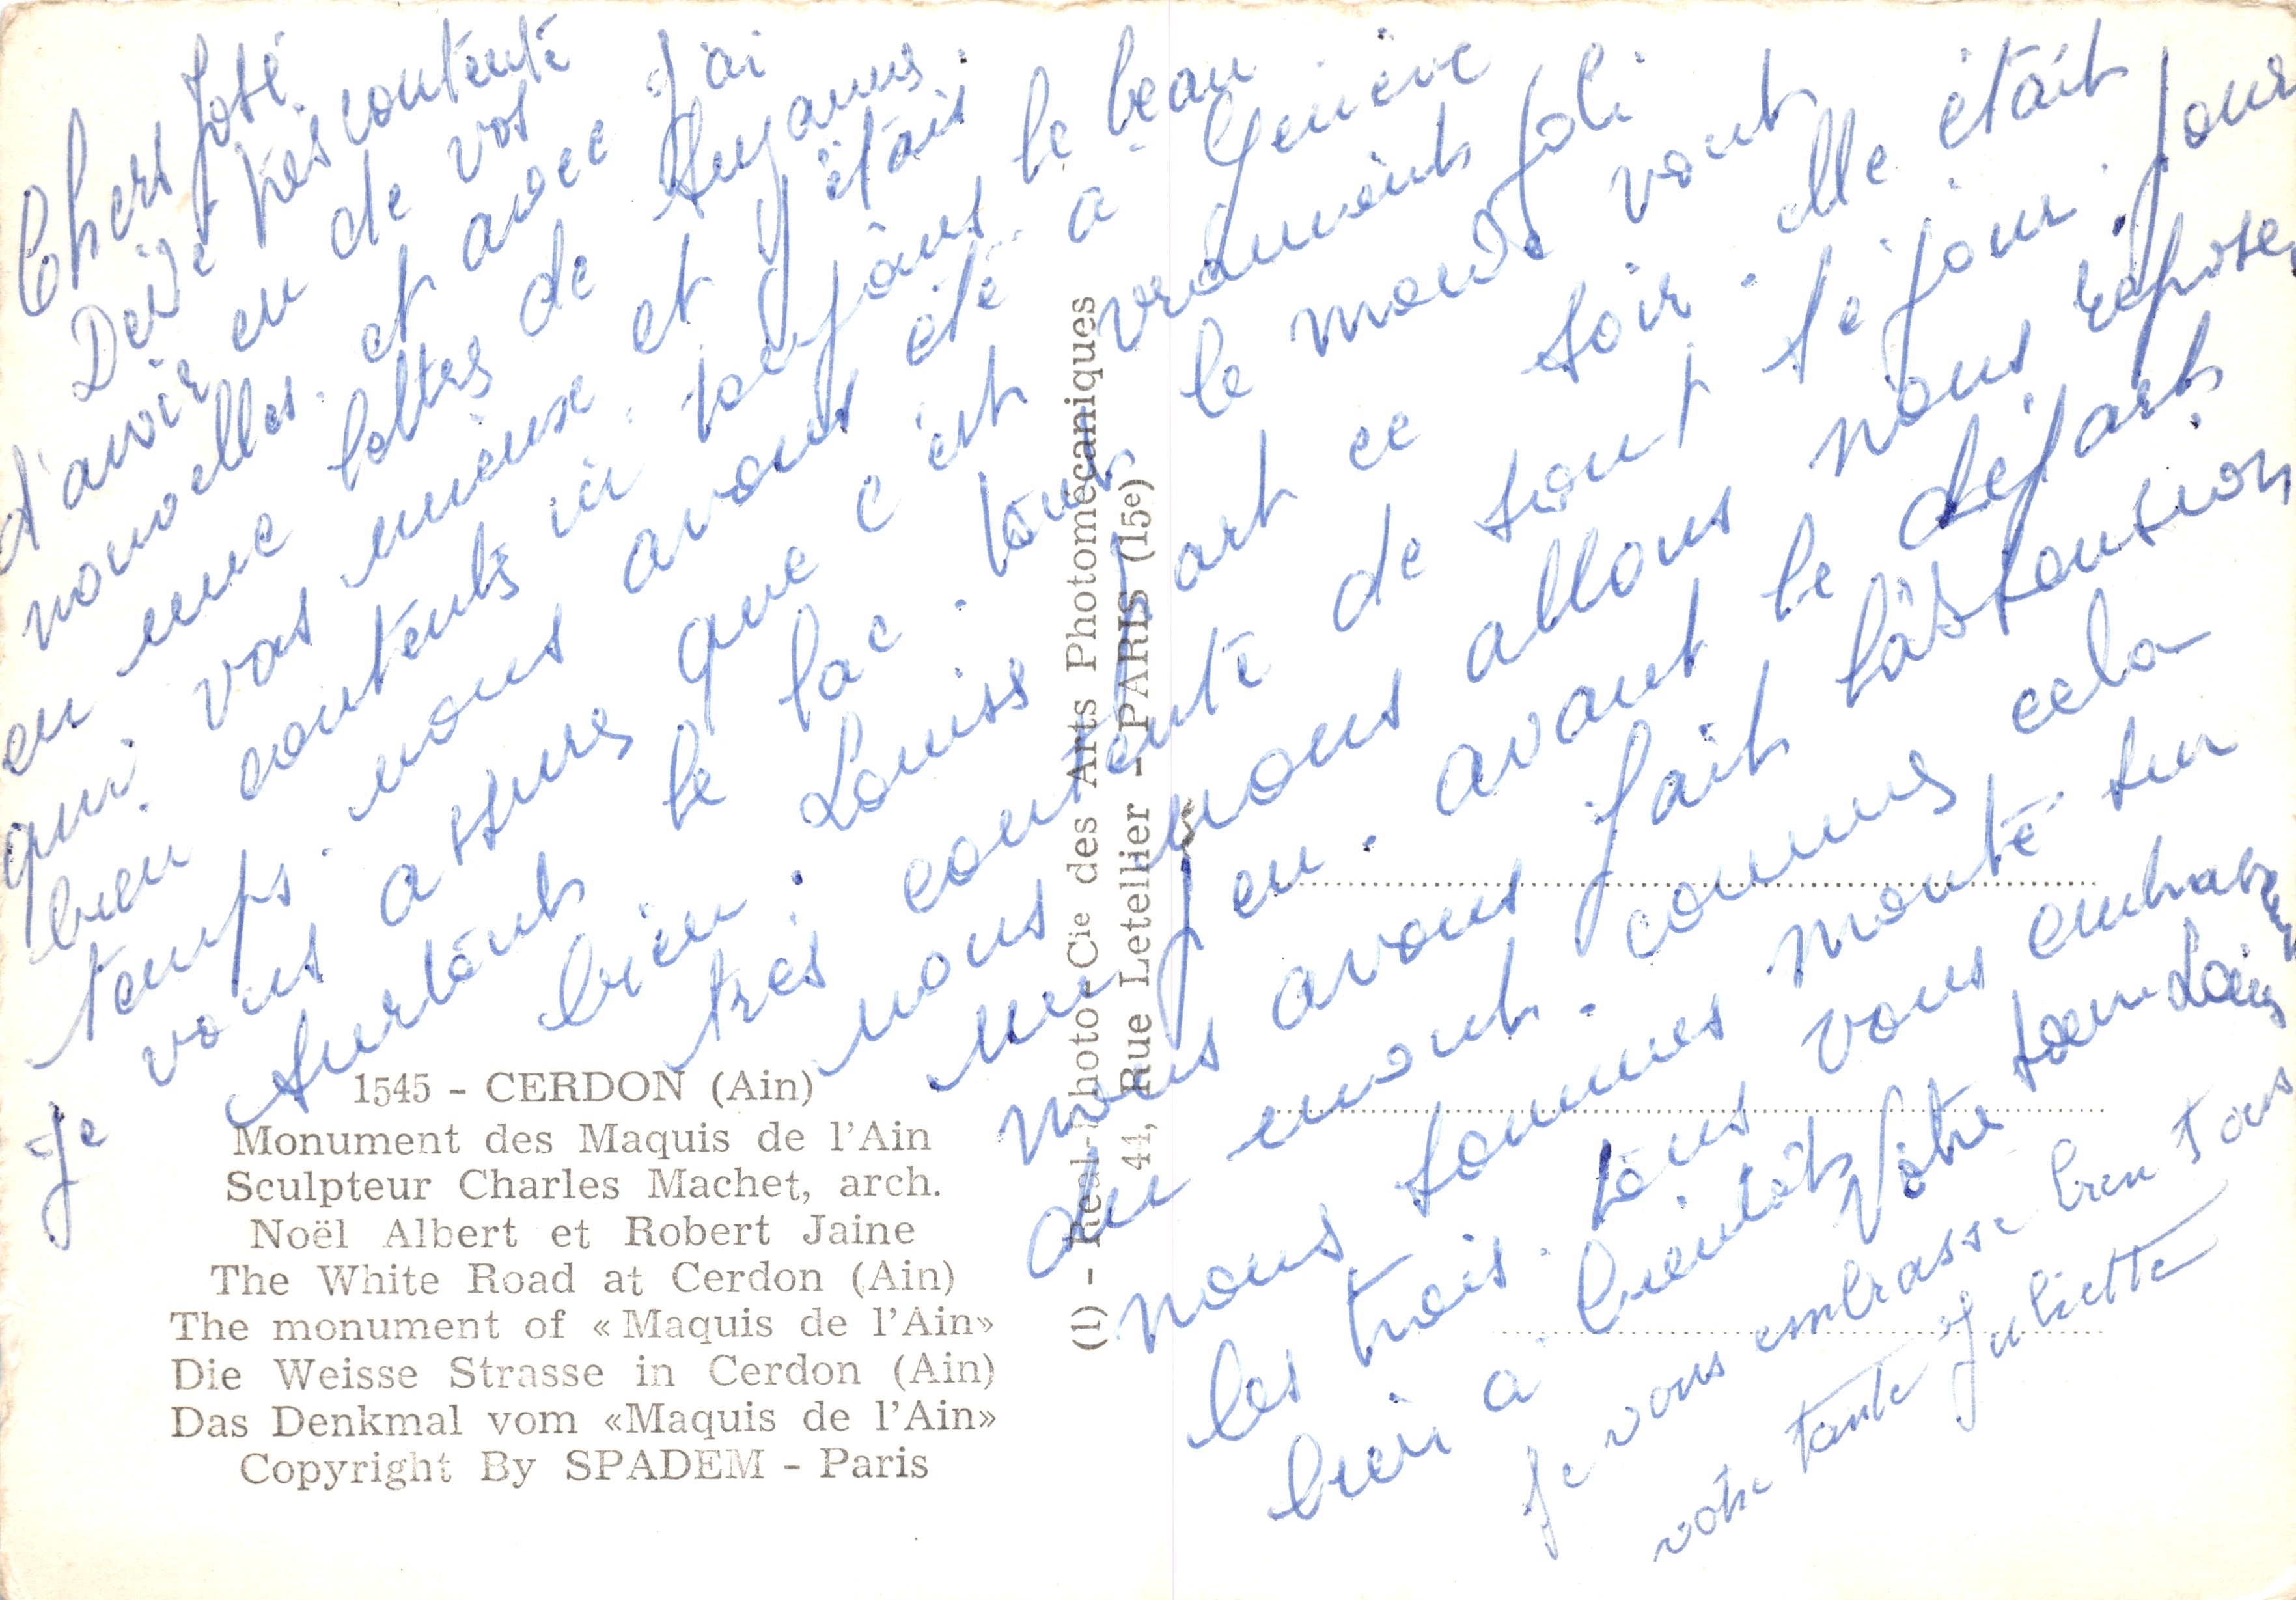 Chers José
Dédé très contente
d'avoir eu de vos
nouvelles. et avec j'ai
eu une lettres de Suzanne.
qui. vas mieux et y étais
bien contents ici toujours le beau
temps. nous avons été a Genève
Je vous assures que c'est vraiments joli
surtônt le lac. tous le monde vont
bien. Louiss art ce soir. elle était
très contente de sont séjour. pour
nous nous allons nous reposer
un peu. avant le départs
nous avons fait l'asponsion
du mont. comms cela
nous sommes monté sur
les trois. tous vous embrasse
bien a bientôt Votre soeur Loiss
Je vous embrasse bien tous
votre tante Juliette
1545 - CERDON (Ain)
Monument des Maquis de l'Ain
Sculpteur Charles Machet, arch.
Noël Albert et Robert Jaine
The White Road at Cerdon (Ain)
The monument of «Maquis de l'Ain»
Die Weisse Strasse in Cerdon (Ain)
Das Denkmal vom «Maquis de l'Ain»
Copyright By SPADEM - Paris
(1) - Réal-Photo-Cie des Arts Photomécaniques
44, Rue Letellier - PARIS (15e)